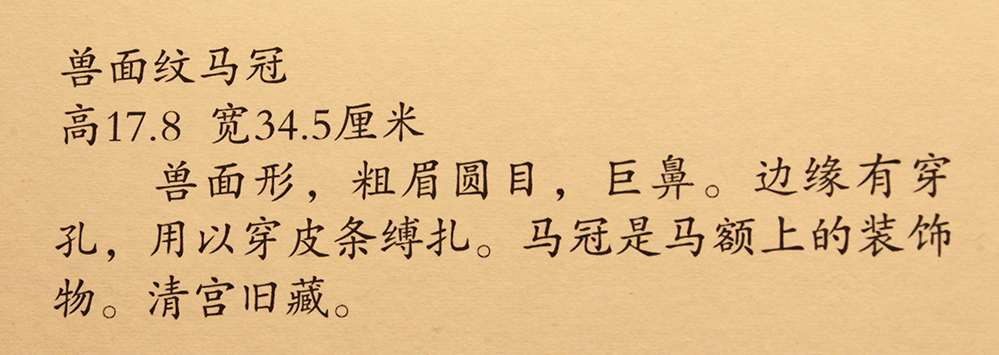 兽面纹马冠
高17.8 宽34.5厘米
兽面形，粗眉圆目，巨鼻。边缘有穿
孔，用以穿皮条缚扎。马冠是马额上的装饰
物。清宫旧藏。